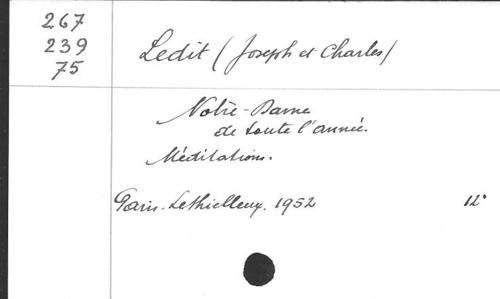 267
239
75
Ledit (Joseph et Charles)
Notre-Dame
de toute l'année.
Méditations.
Paris. Lethielleux. 1952 12°